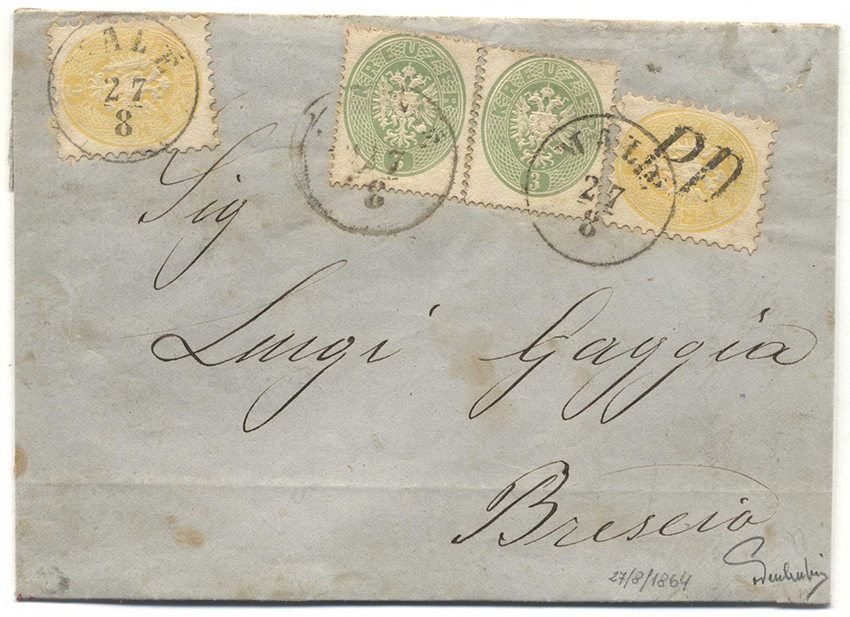 ALE
27
8
KREUZER
27
8
KREUZER
3
MALE
27
8
PD
Sig
Luigi Gaggia
Brescia
27/8/1864